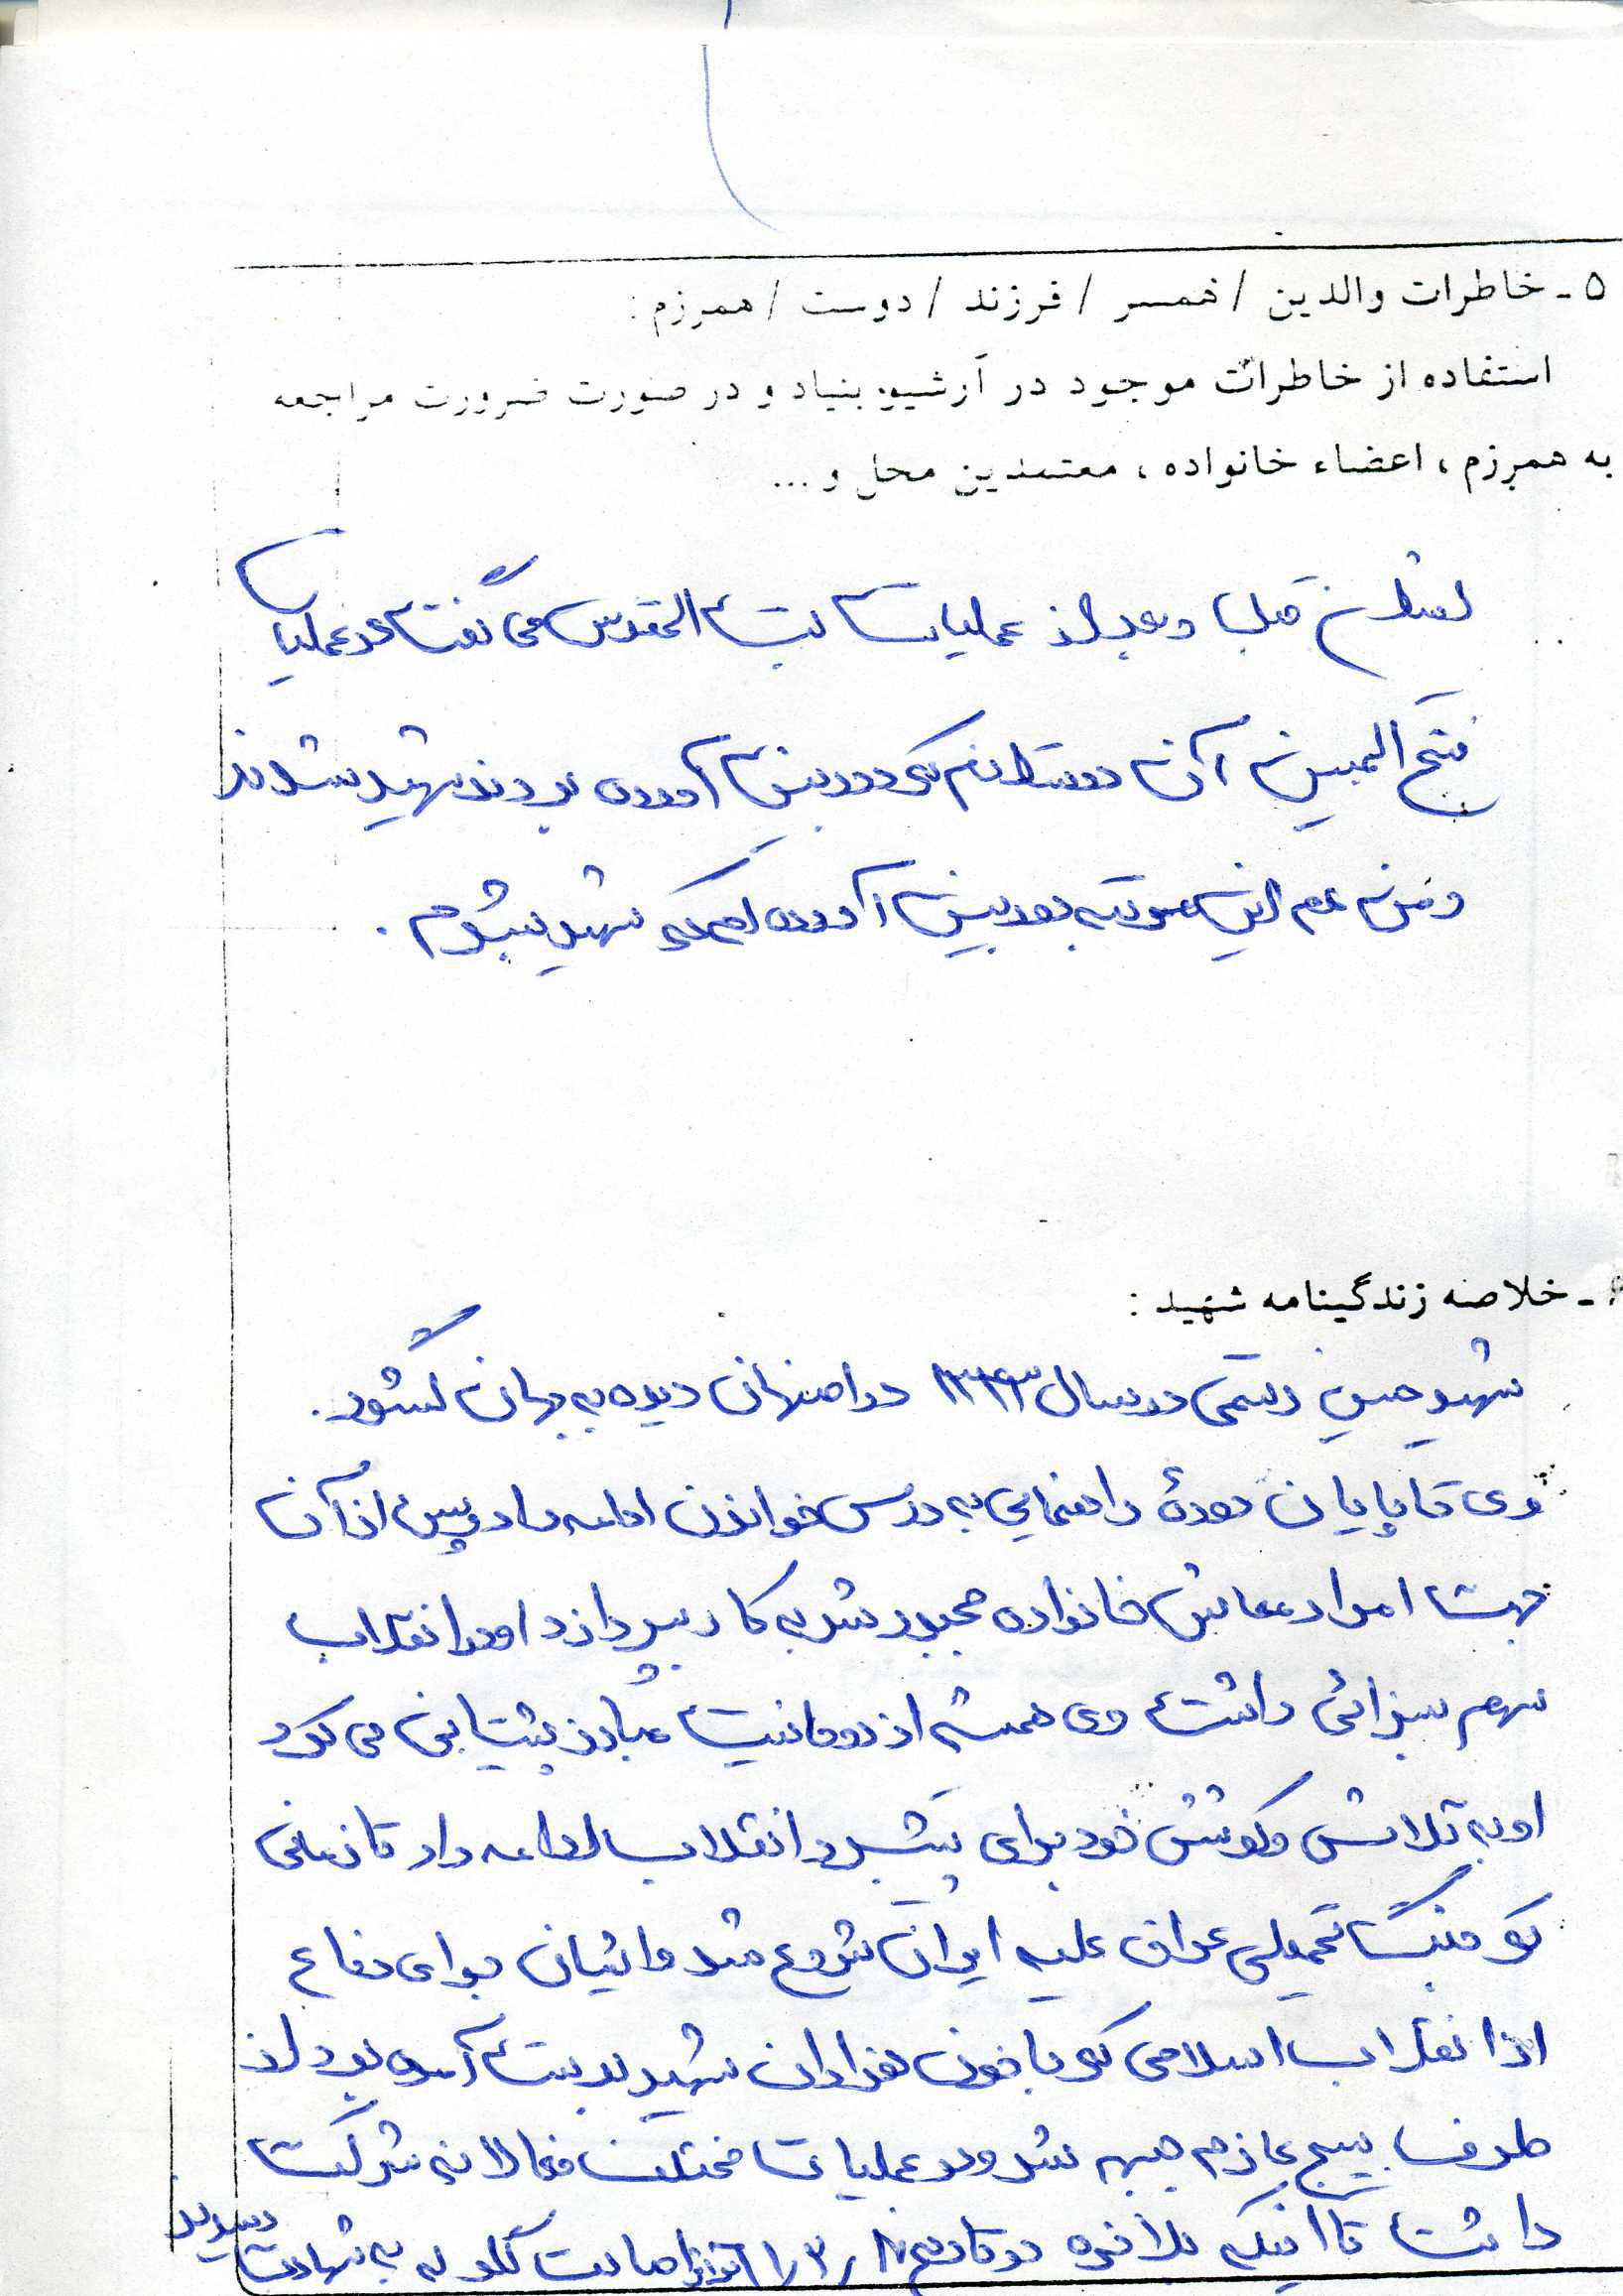 ۵ - خاطرات والدین / همسر / فرزند / دوست / همرزم :
استفاده از خاطرات موجود در آرشیو بنیاد و در صورت ضرورت مراجعه
به همرزم ، اعضاء خانواده ، معتمدین محل و ...
قبل و بعد از عملیات بیت المقدس می گفت در عملیات
فتح المبین آن دوستانم که دوربین آورده بودند شهید شدند
و من هم این مرتبه دوربین آورده ام که شهید بشوم .
۶ - خلاصه زندگینامه شهید :
شهید حسین رستمی در سال ۱۳۴۳ در اصفهان دیده به جهان گشود .
وی تا پایان دورهٔ راهنمایی به درس خواندن ادامه داد و پس از آن
جهت امرار معاش خانواده مجبور شد به کار بپردازد او در انقلاب
سهم سزائی داشت وی همیشه از روحانیت مبارز پشتیبانی می کرد
او به تلاش و کوشش خود برای پیشبرد انقلاب ادامه داد تا زمانی
که جنگ تحمیلی عراق علیه ایران شروع شد و ایشان برای دفاع
از انقلاب اسلامی که با خون هزاران شهید بدست آمده بود از
طرف بسیج عازم جبهه شد و در عملیات مختلف فعالانه شرکت
داشت تا اینکه بلاخره در تاریخ اصابت گلوله به شهادت رسیدند